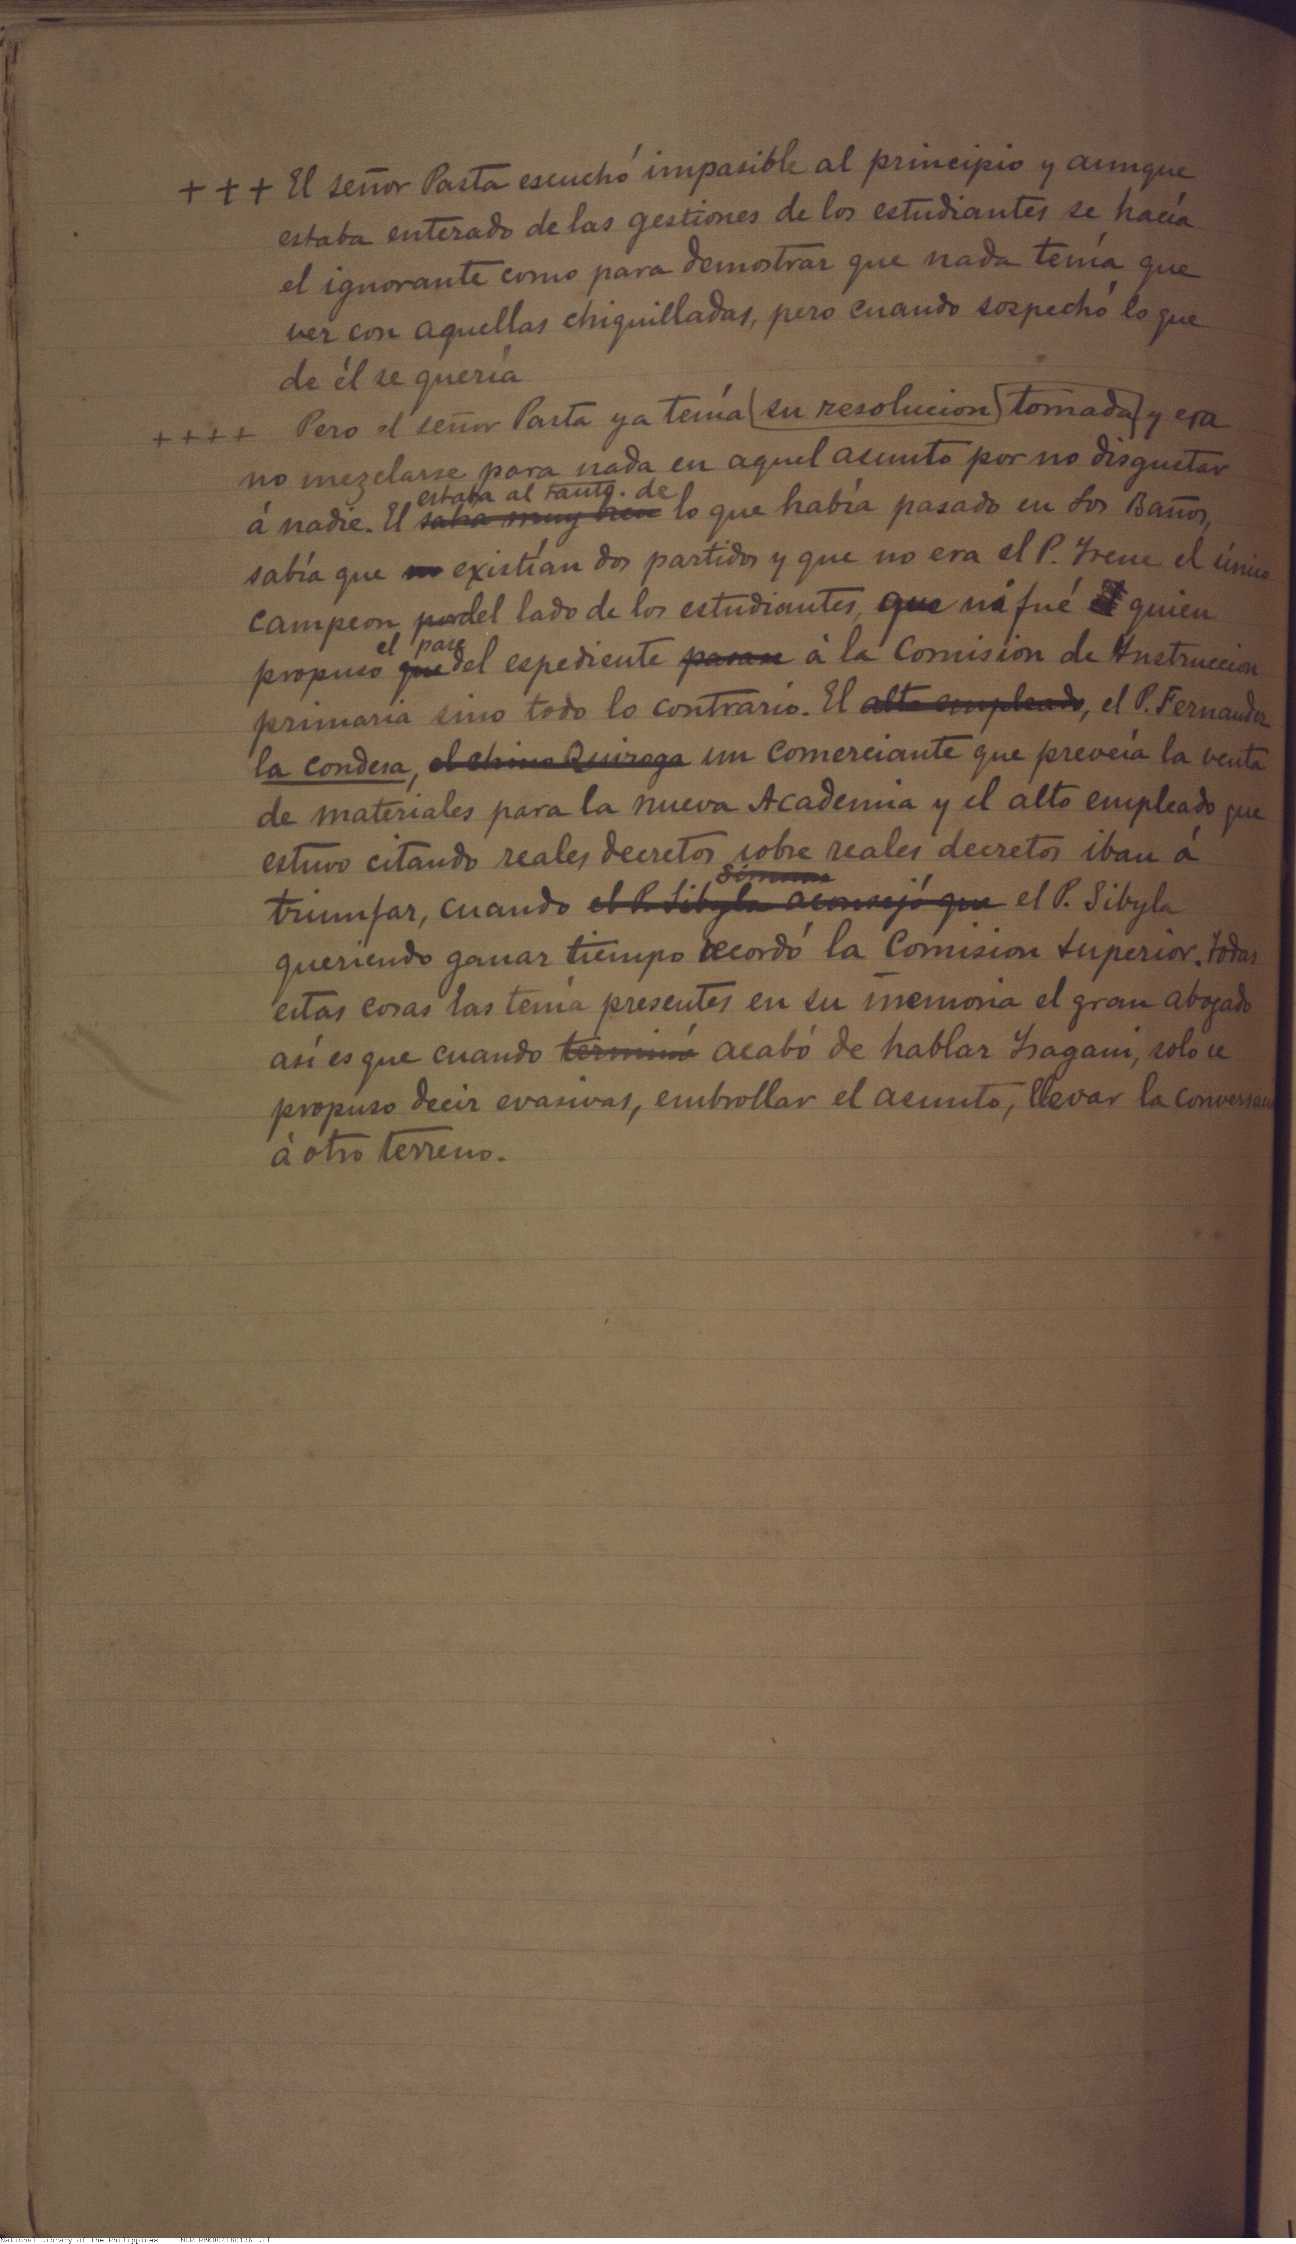 +++ El señor Pasta escuchó impasible al principio y aunque
estaba enterado de las gestiones de los estudiantes se hacía
el ignorante como para demostrar que nada tenía que
ver con aquellas chiquilladas, pero cuando sospechó lo que
de él se quería
++++ Pero el señor Pasta ya tenía su resolucion tomada y era
no mezclarse para nada en aquel asunto por no disgustar
estaba al tanto. de
á nadie. El sabía muy bien lo que había pasado en Los Baños,
sabía que no existían dos partidos y que no era el P. Irene el único
campeon por del lado de los estudiantes, que ni fué él quien
el pase
propuso que del espediente pasase á la Comision de Instruccion
primaria sino todo lo contrario. El alto empleado, el P. Fernandez
la condesa, el chino Quiroga un comerciante que preveía la venta
de materiales para la nueva Academia y el alto empleado que
estuvo citando reales decretos sobre reales decretos iban á
Simoun
triumfar, cuando el P. Sibyla aconsejó que el P. Sibyla
queriendo ganar tiempo recordó la Comision Superior. Todas
estas cosas las tenía presentes en su memoria el gran abogado
así es que cuando terminó acabó de hablar Isagani, solo se
propuso decir evasivas, embrollar el asunto, llevar la
á otro terreno.
National Library of the Philippines